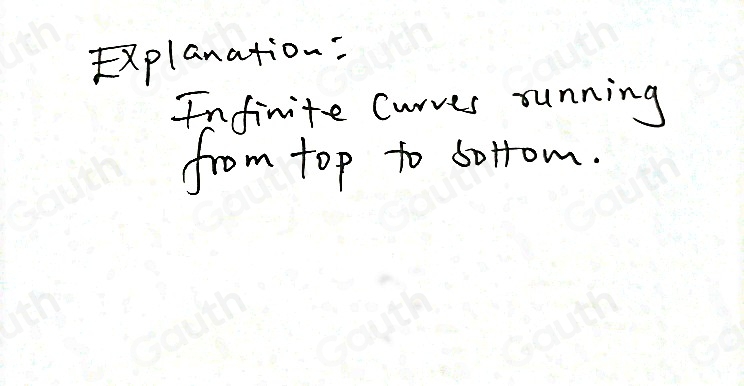 Explanation:
Infinite Curves running
from top to bottom.